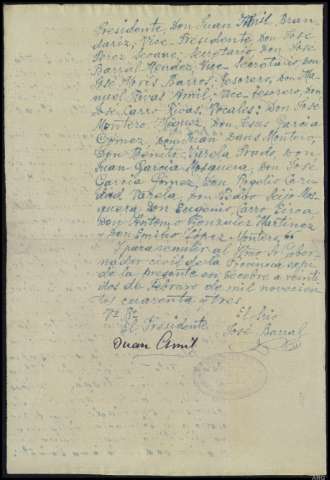 Presidente, Don Juan Amil Bran
dariz, Vice Presidente Don José
Pérez Seoane, Secretario Don José
Barral Mendez, Vice Secretario Don
José Moris Barros, Tesorero, Don Ma
nuel Rivas Amil, Vice Tesorero, Don
José Carro Rivas, Vocales: Don José
Montero Miguez, Don Jesus Garcia
Gomez, Don Juan Dans Montero,
Don Benito Varela Prado, Don
Juan Garcia Mosquera, Don José
Garcia Gomez, Don Rogelio
Varela, Don Pedro Seijo Mos
quera, Don Eugenio Carro
Don Antonio Gonzalez Martinez
y Don Emilio López Montero
Y para remitir al Exmo Sr Gober
nador civil de la Provincia expi
do la presente en a veinti
dos de Febrero de mil novecien
tos cuarenta y tres
Vº Bº
El Srio
El Presidente
José Barral
Juan Amil